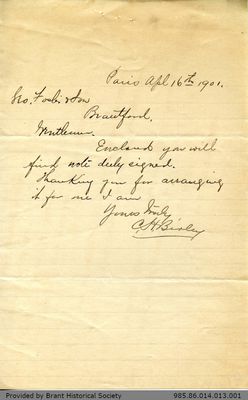 Paris Apl 16th 1901.
Geo. Foulis & Son
Brantford.
Gentlemen.
Enclosed you will
find note duly signed.
Thanking you for arranging
it for me I am
Yours truly
C H
Provided by Brant Historical Society
985.86.014.013.001